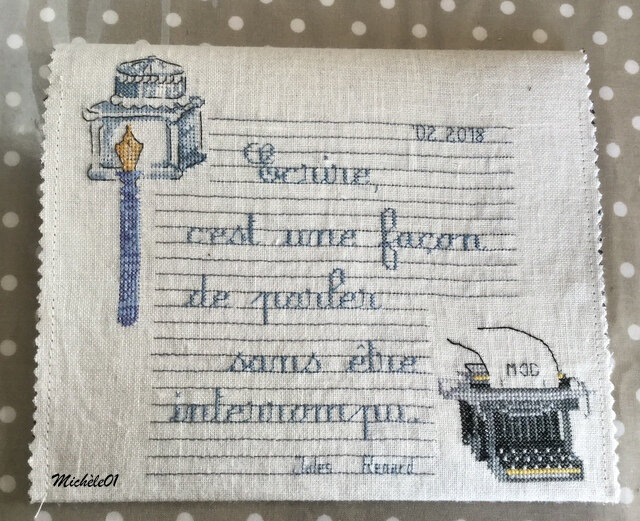 02.2018
Ecrire,
c'est une façon
de parler
sans être
interrompu.
Jules Renard
MOD
Michèle01